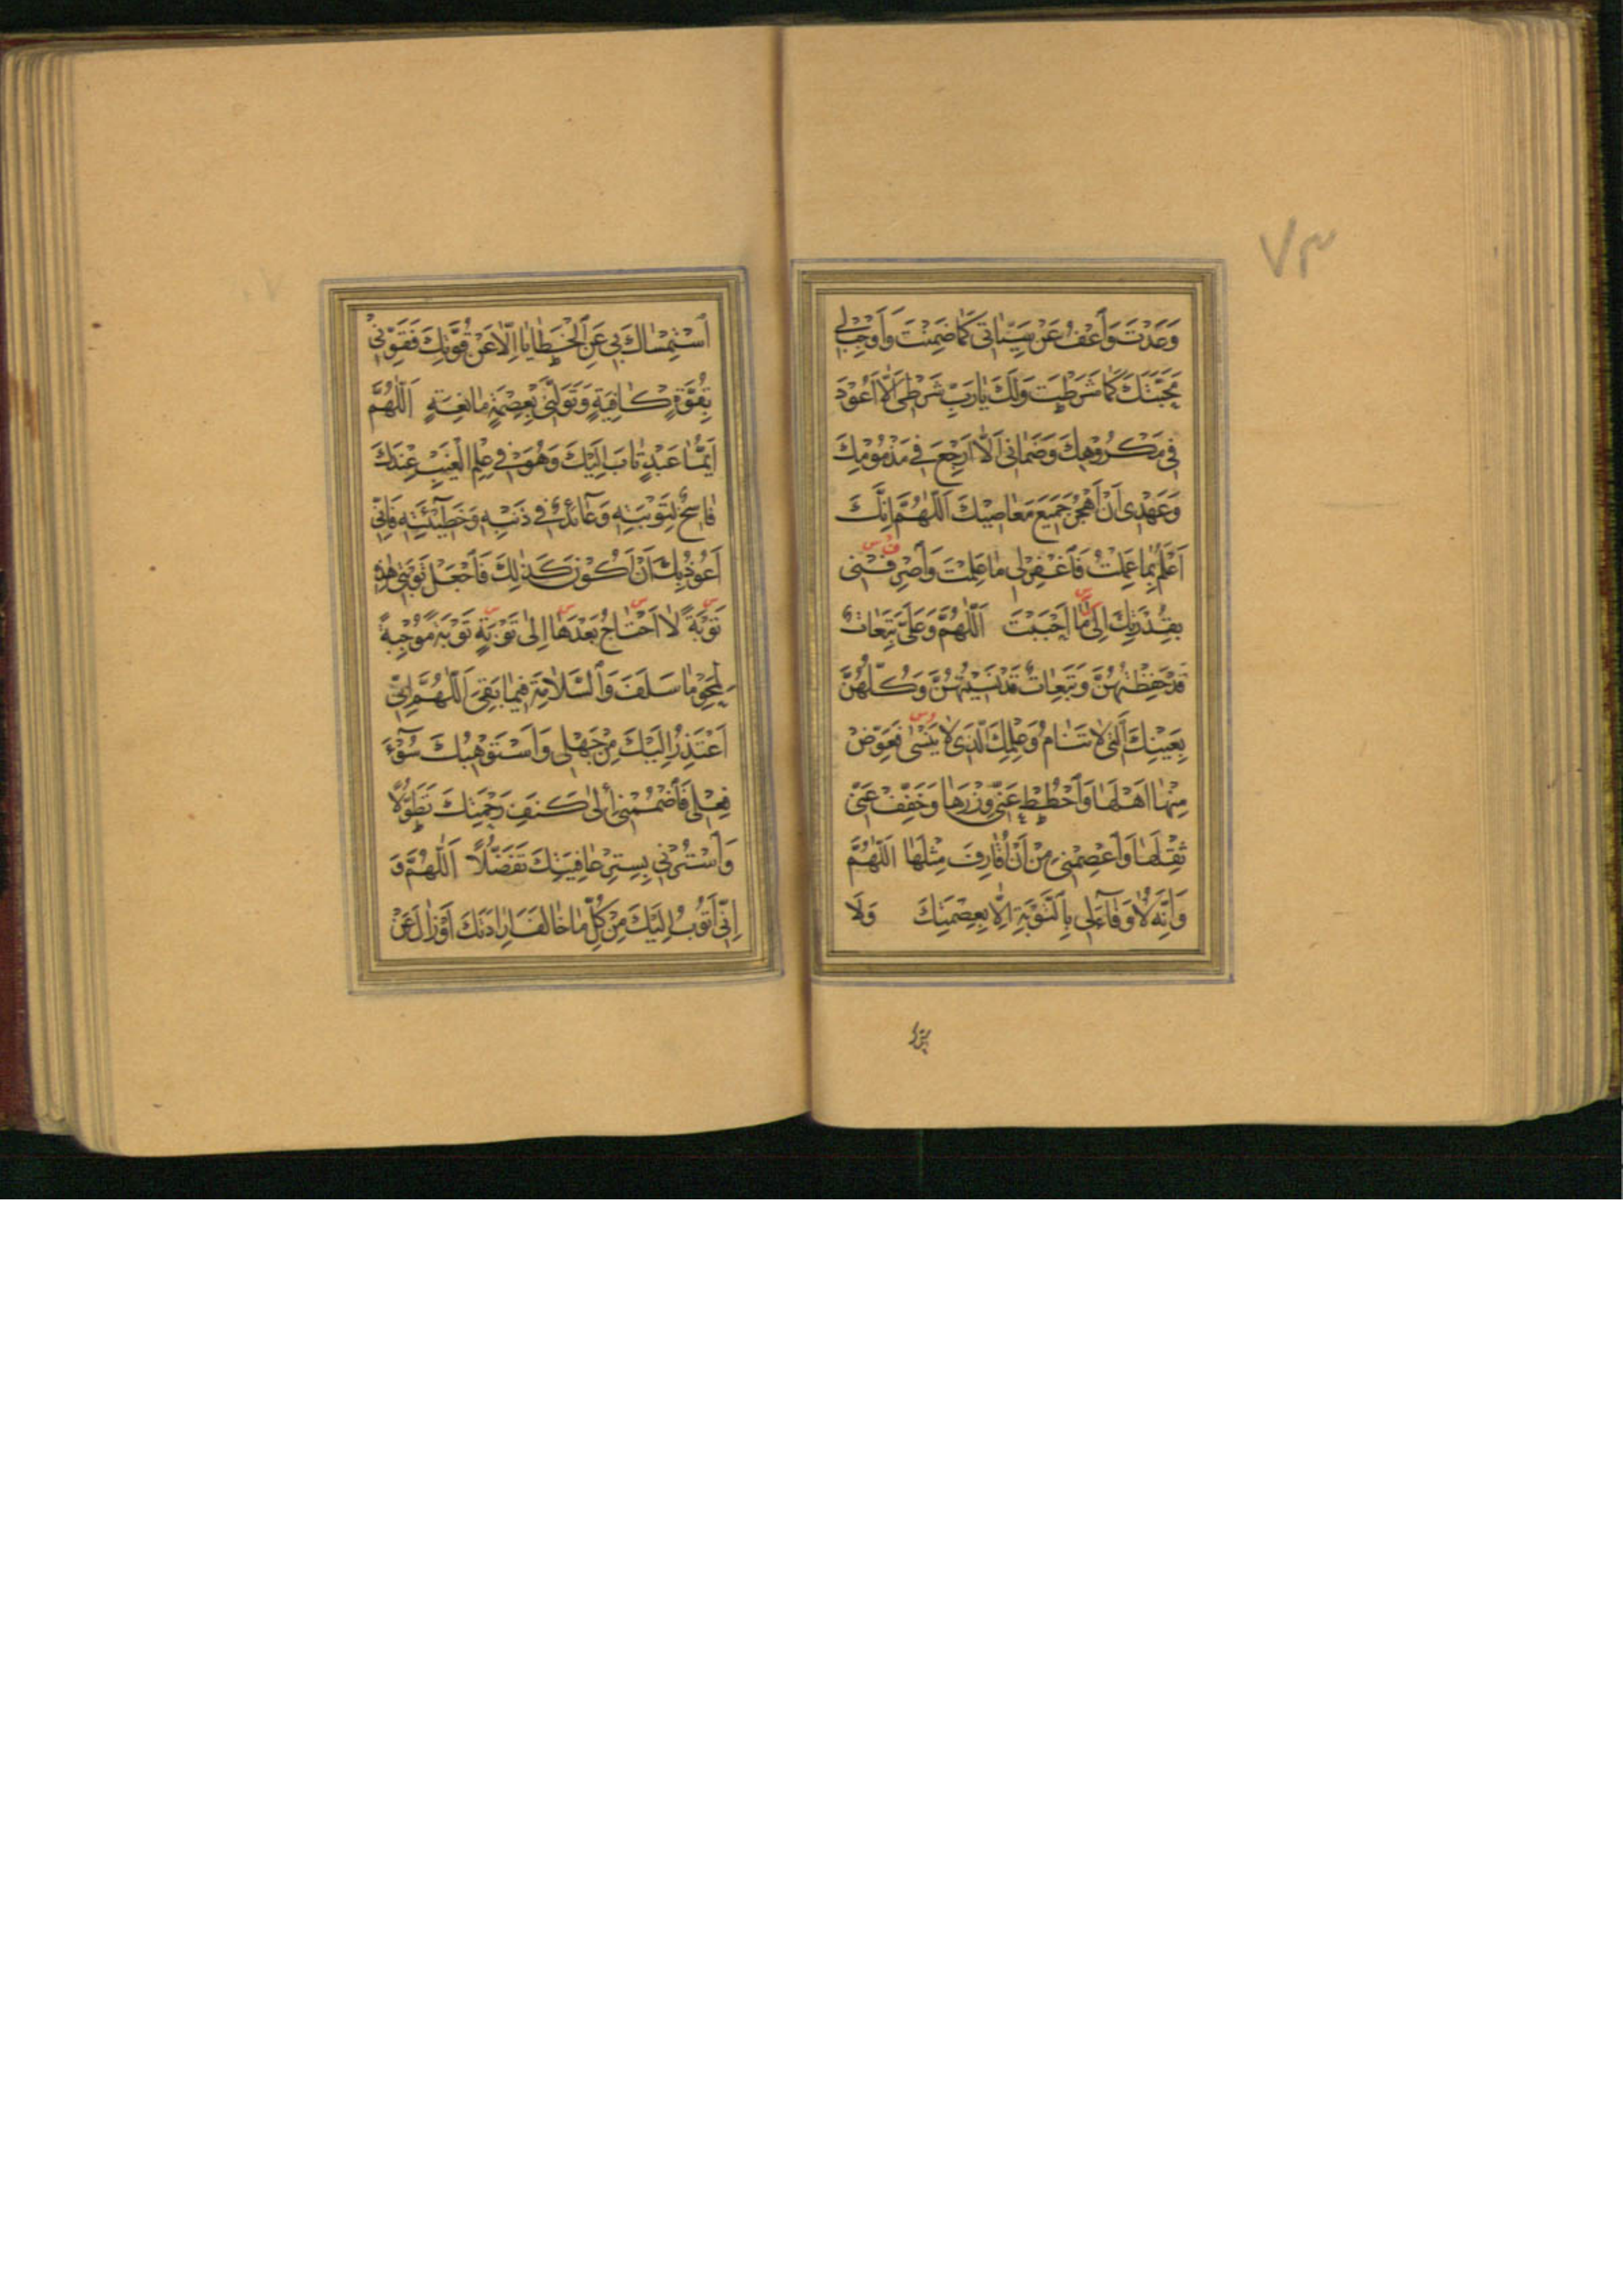 ٧٣
وَعَدْتَ وَاعْفُ عَنْ سَيِّئَاتِي كَمَا ضَمِنْتَ وَأَوْجِبْ لِي
مَحَبَّتَكَ كَمَا شَرَطْتَ وَلَكَ يَا رَبِّ شَرْطِي أَلَّا أَعُودَ
فِي مَكْرُوهِكَ وَضَمَانِي أَلَّا أَرْجِعَ فِي مَذْمُومِكَ
وَعَهْدِي أَنْ أَهْجُرَ جَمِيعَ مَعَاصِيكَ اَللّٰهُمَّ إِنَّكَ
أَعْلَمُ بِمَا عَمِلْتُ فَاغْفِرْ لِي مَا عَلِمْتَ وَاصْرِفْنِي
بِقُدْرَتِكَ إِلَى مَا أَحْبَبْتَ اَللّٰهُمَّ وَعَلَيَّ تَبِعَاتٌ
قَدْ حَفِظْتُهُنَّ وَتَبِعَاتٌ قَدْ نَسِيتُهُنَّ وَكُلُّهُنَّ
بِعَيْنِكَ الَّتِي لَا تَنَامُ وَعِلْمِكَ الَّذِي لَا يَنْسَى فَعَوِّضْ
مِنْهَا أَهْلَهَا وَاحْطُطْ عَنِّي وِزْرَهَا وَخَفِّفْ عَنِّي
ثِقْلَهَا وَاعْصِمْنِي مِنْ أَنْ أُقَارِفَ مِثْلَهَا اَللّٰهُمَّ
وَإِنَّهُ لَا وَفَاءَ لِي بِالتَّوْبَةِ إِلَّا بِعِصْمَتِكَ وَلَا
اسْتِمْسَاكَ بِي عَنِ الْخَطَايَا إِلَّا عَنْ قُوَّتِكَ فَقَوِّنِي
بِقُوَّةٍ كَافِيَةٍ وَتَوَلَّنِي بِعِصْمَةٍ مَانِعَةٍ اَللّٰهُمَّ
أَيُّمَا عَبْدٍ تَابَ إِلَيْكَ وَهُوَ فِي عِلْمِ الْغَيْبِ عِنْدَكَ
فَاسِخٌ لِتَوْبَتِهِ وَعَائِدٌ فِي ذَنْبِهِ وَخَطِيئَتِهِ فَإِنِّي
أَعُوذُ بِكَ أَنْ أَكُونَ كَذٰلِكَ فَاجْعَلْ تَوْبَتِي هٰذِهِ
تَوْبَةً لَا أَحْتَاجُ بَعْدَهَا إِلَى تَوْبَةٍ تَوْبَةً مُوجِبَةً
لِمَحْوِ مَا سَلَفَ وَالسَّلَامَةِ فِيمَا بَقِيَ اَللّٰهُمَّ إِنِّي
أَعْتَذِرُ إِلَيْكَ مِنْ جَهْلِي وَأَسْتَوْهِبُكَ سُوءَ
فِعْلِي فَاضْمُمْنِي إِلَى كَنَفِ رَحْمَتِكَ تَطَوُّلًا
وَاسْتُرْنِي بِسِتْرِ عَافِيَتِكَ تَفَضُّلًا اَللّٰهُمَّ وَ
إِنِّي أَتُوبُ إِلَيْكَ مِنْ كُلِّ مَا خَالَفَ إِرَادَتَكَ أَوْ زَالَ عَنْ